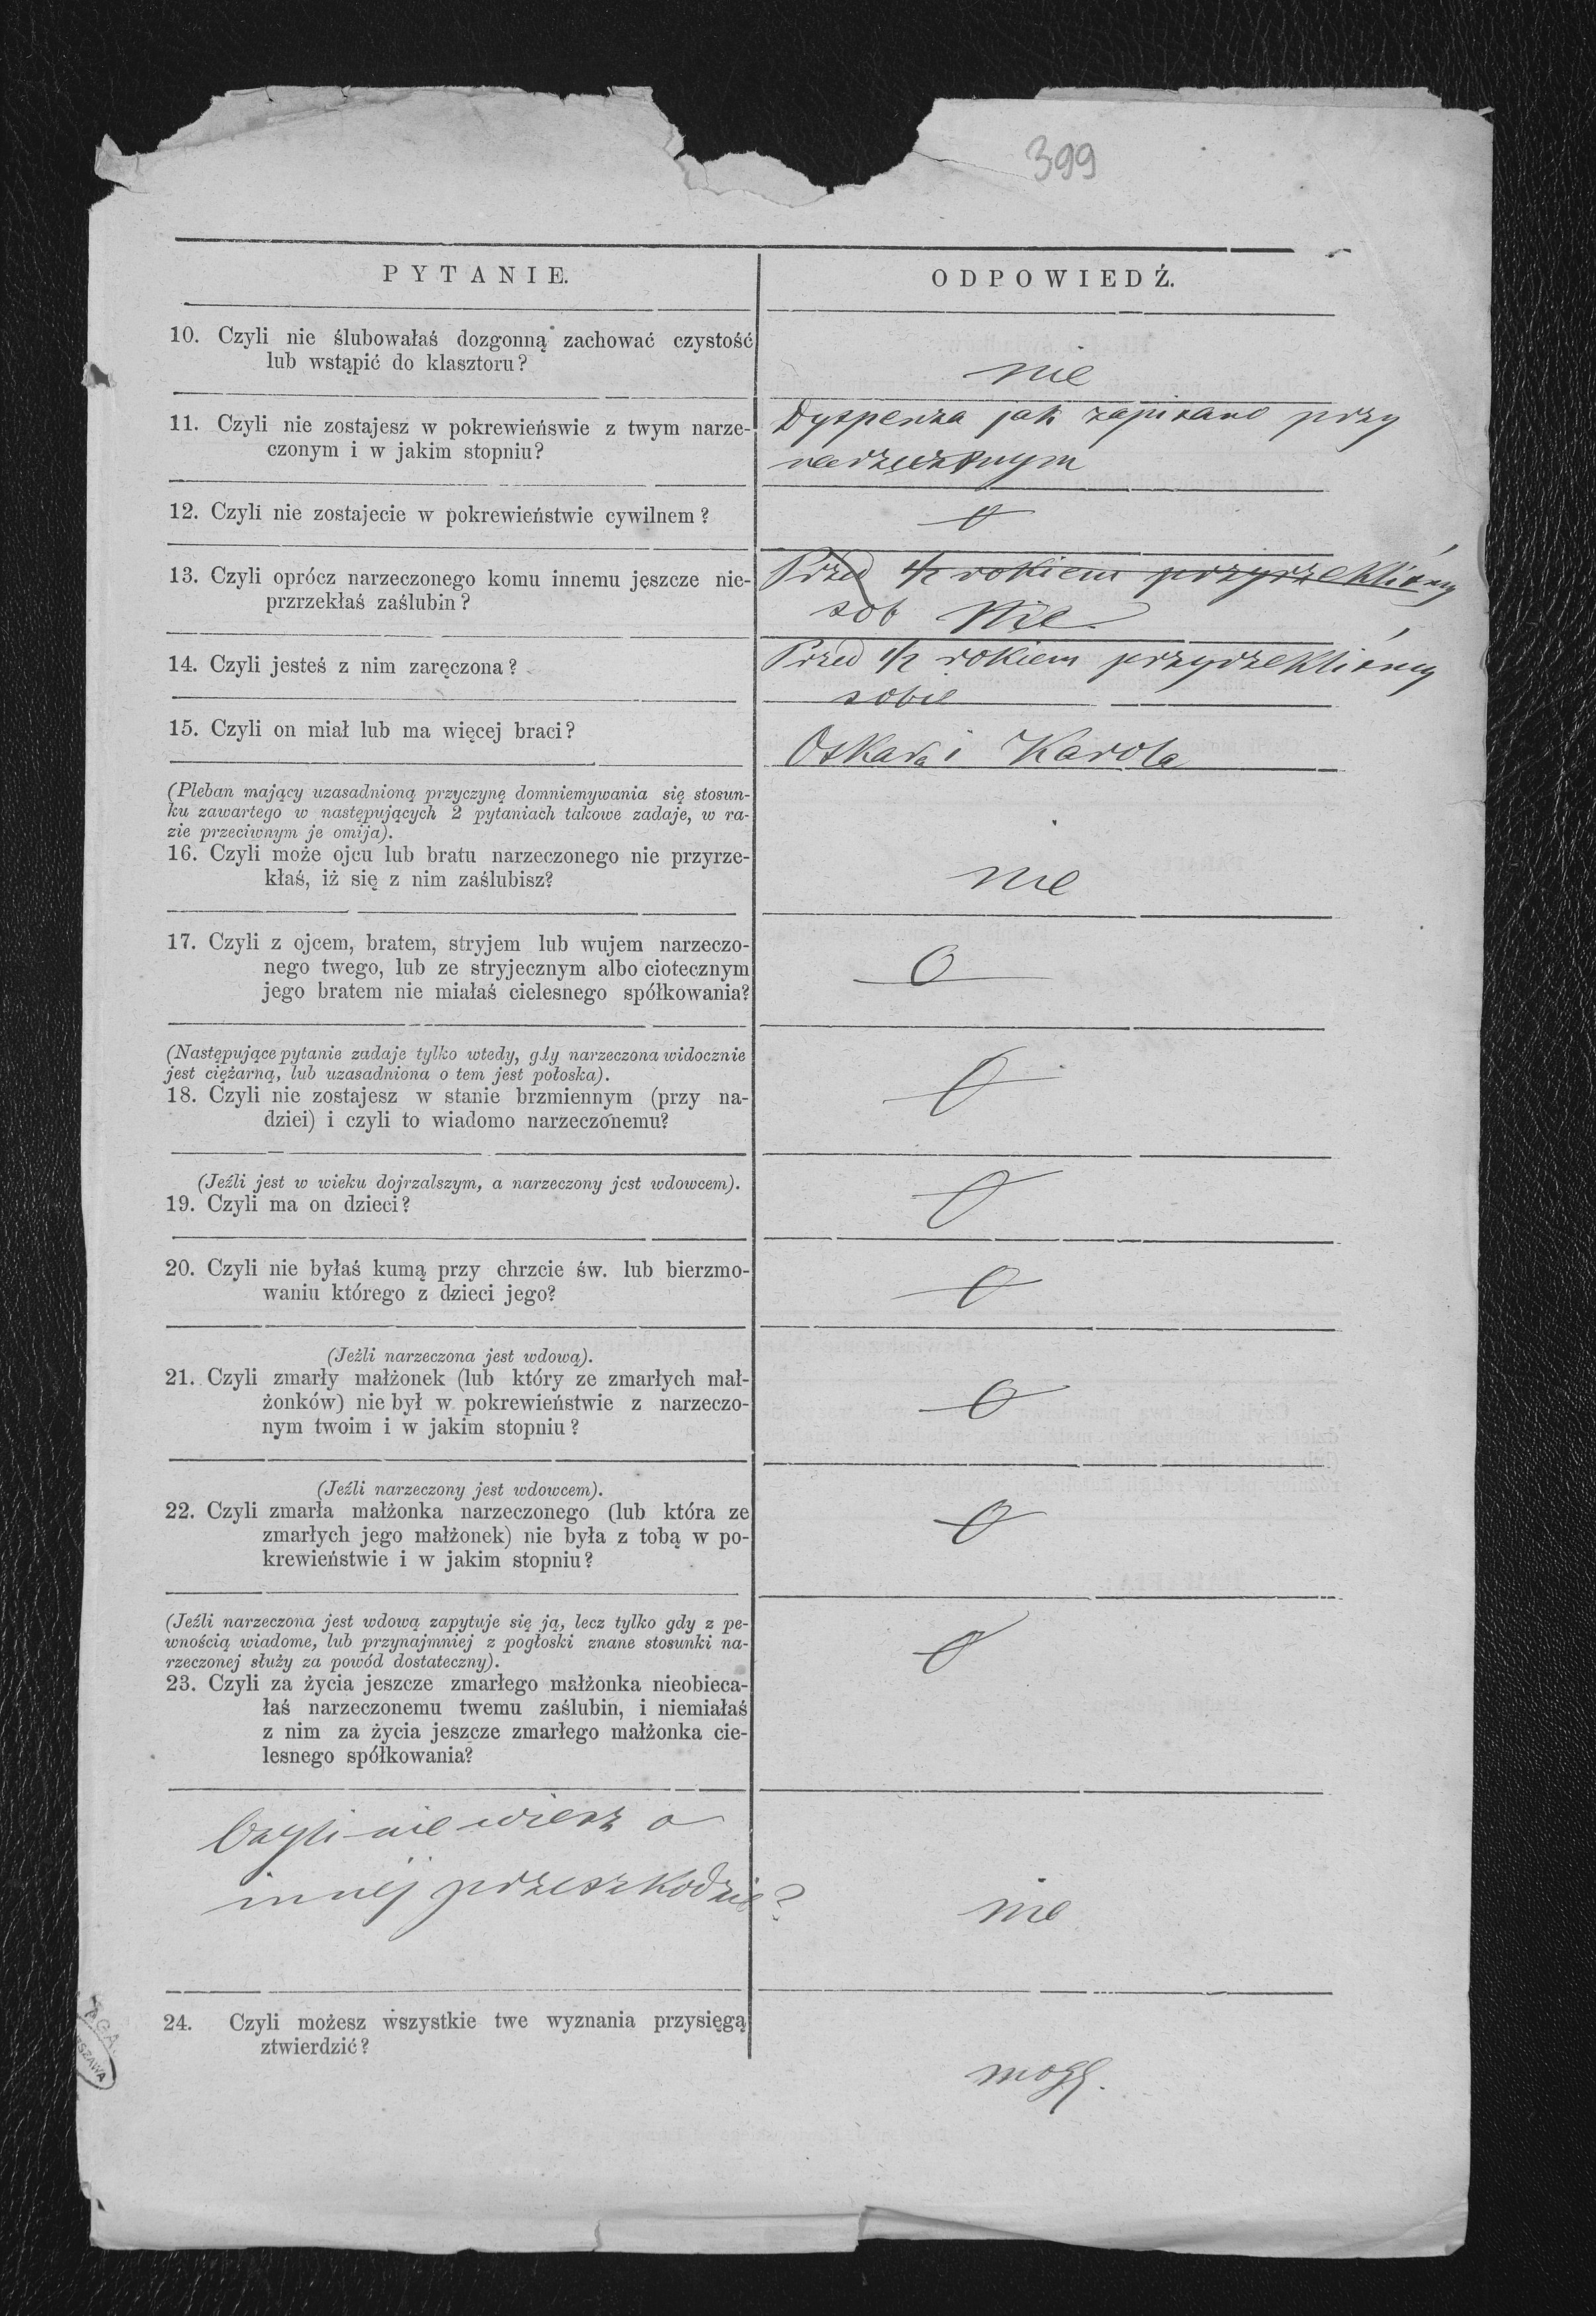 399
PYTANIE.
ODPOWIEDŹ.
10. Czyli nie ślubowałaś dozgonną zachować czystość
lub wstąpić do klasztoru?
nie
11. Czyli nie zostajesz w pokrewieńswie z twym narze-
czonym i w jakim stopniu?
Dyspenza jak zapisano przy
narzeczonym
12. Czyli nie zostajecie w pokrewieństwie cywilnem?
0
13. Czyli oprócz narzeczonego komu innemu jęszcze nie-
przrzekłaś zaślubin?
Przed 1/2 rokiem przyrzekliśmy
sob Nie
14. Czyli jesteś z nim zaręczona?
Przed 1/2 rokiem przyrzekliśmy
sobie
15. Czyli on miał lub ma więcej braci?
Oskara i Karola
(Pleban mający uzasadnioną przyczynę domniemywania się stosun-
ku zawartego w następujących 2 pytaniach takowe zadaje, w ra-
zie przeciwnym je omija).
16. Czyli może ojcu lub bratu narzeczonego nie przyrze-
kłaś, iż się z nim zaślubisz?
nie
17. Czyli z ojcem, bratem, stryjem lub wujem narzeczo-
nego twego, lub ze stryjecznym albo ciotecznym
jego bratem nie miałaś cielesnego spółkowania?
0
(Następujące pytanie zadaje tylko wtedy, gdy narzeczona widocznie
jest ciężarną, lub uzasadniona o tem jest połoska).
18. Czyli nie zostajesz w stanie brzmiennym (przy na-
dziei) i czyli to wiadomo narzeczonemu?
0
(Jeźli jest w wieku dojrzalszym, a narzeczony jest wdowcem).
19. Czyli ma on dzieci?
0
20. Czyli nie byłaś kumą przy chrzcie św. lub bierzmo-
waniu którego z dzieci jego?
0
(Jeźli narzeczona jest wdową).
21. Czyli zmarły małżonek (lub który ze zmarłych mał-
żonków) nie był w pokrewieństwie z narzeczo-
nym twoim i w jakim stopniu?
0
(Jeźli narzeczony jest wdowcem).
22. Czyli zmarła małżonka narzeczonego (lub która ze
zmarłych jego małżonek) nie była z tobą w po-
krewieństwie i w jakim stopniu?
0
(Jeźli narzeczona jest wdową zapytuje się ją, lecz tylko gdy z pe-
wnością wiadome, lub przynajmniej z pogłoski znane stosunki na-
rzeczonej służy za powód dostateczny).
23. Czyli za życia jeszcze zmarłego małżonka nieobieca-
łaś narzeczonemu twemu zaślubin, i niemiałaś
z nim za życia jeszcze zmarłego małżonka cie-
lesnego spółkowania?
0
Czyli nie wiesz o
innej przeszkodzie?
nie
24. Czyli możesz wszystkie twe wyznania przysięgą
ztwierdzić?
mogę.